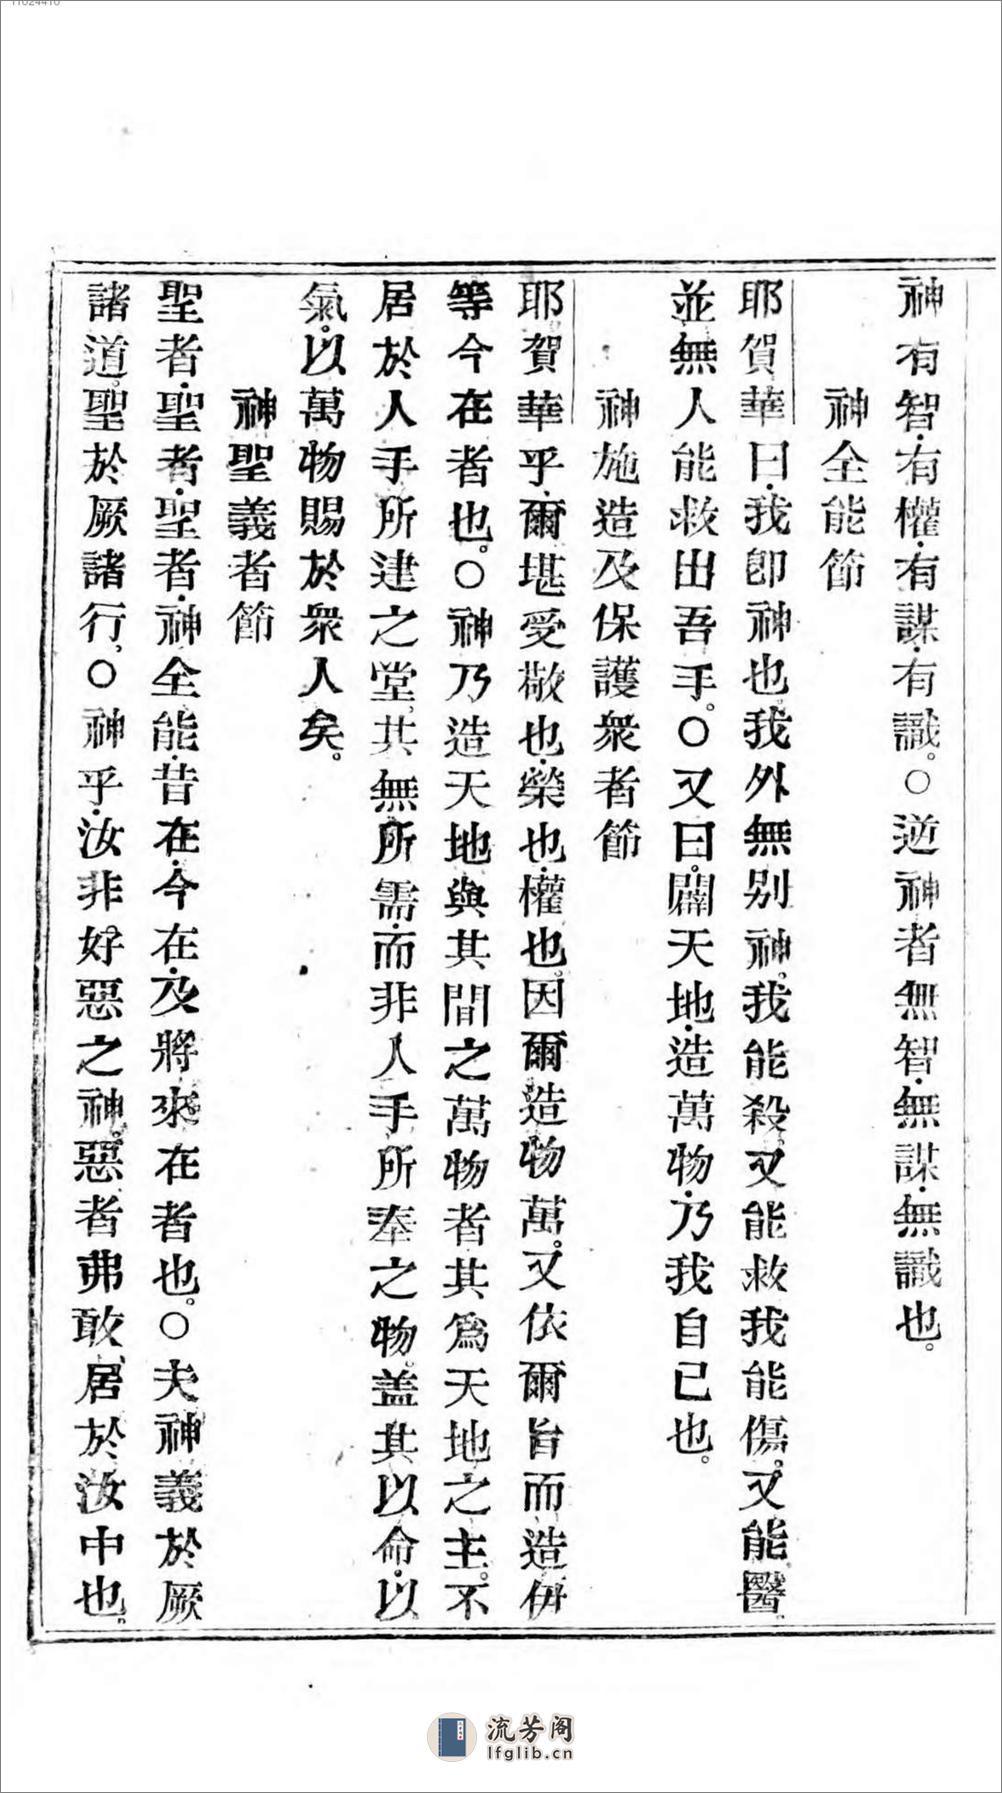 神有智·有權·有謀·有識。○逆神者無智·無謀·無識也。
神全能節
耶賀華曰·我卽神也。我外無别神。我能殺。又能救我能傷。又能醫。
並無人能救出吾手。○又曰·闢天地·造萬物·乃我自己也。
神施造及保護衆者節
耶賀華乎·爾堪愛敬也·榮也·權也。因爾造物萬。又依爾旨而造伊
等今在者也。○神乃造天地與其間之萬物者其爲天地之主。不
居於人手所建之堂·其無所需·而非人手所奉之物。盖其以命·以
氣。以萬物賜於衆人矣。
神聖義者節
聖者·聖者·聖者·神全能·昔在·今在·及將來在者也。○夫神義於厥
諸道。聖於厥諸行。○神乎·汝非好惡之神。惡者弗敢居於汝中也。
流芳阁
lfglib.cn